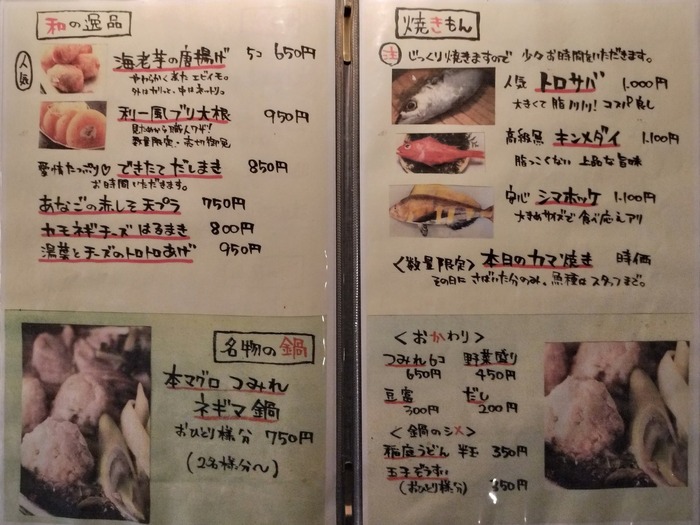 和の逸品
人気
海老芋の唐揚げ 5コ 650円
やわらかくあたエビイモ。
外はカリッと、中はネットリ。
利一風ブリ大根 950円
見ためから職人ワザ!
数量限定・売切御免
愛情たっぷり♡ できたて だしまき 850円
お時間いただきます。
あなごの赤しそ天プラ 750円
カモネギチーズ はるまき 800円
湯葉とチーズのトロトロあげ 950円
名物の鍋
本マグロ つみれ
ネギマ鍋
おひとり様分 750円
(2名様分〜)
焼きもん
注 じっくり焼きますので 少々お時間をいただきます。
人気 トロサバ 1.000円
大きくて 脂ノリノリ! コスパ良し
高級魚 キンメダイ 1.100円
脂っこくない 上品な旨味
安心 シマホッケ 1.100円
大きめサイズで 食べ応えアリ
<数量限定> 本日のカマ焼き 時価
その日に さばいた分のみ、魚種は スタッフまで。
<おかわり>
つみれ6コ 野菜盛り
650円 450円
豆富 だし
300円 200円
<鍋のシメ>
稲庭うどん 半玉 350円
玉子ぞうすい
(おひとり様分) 350円